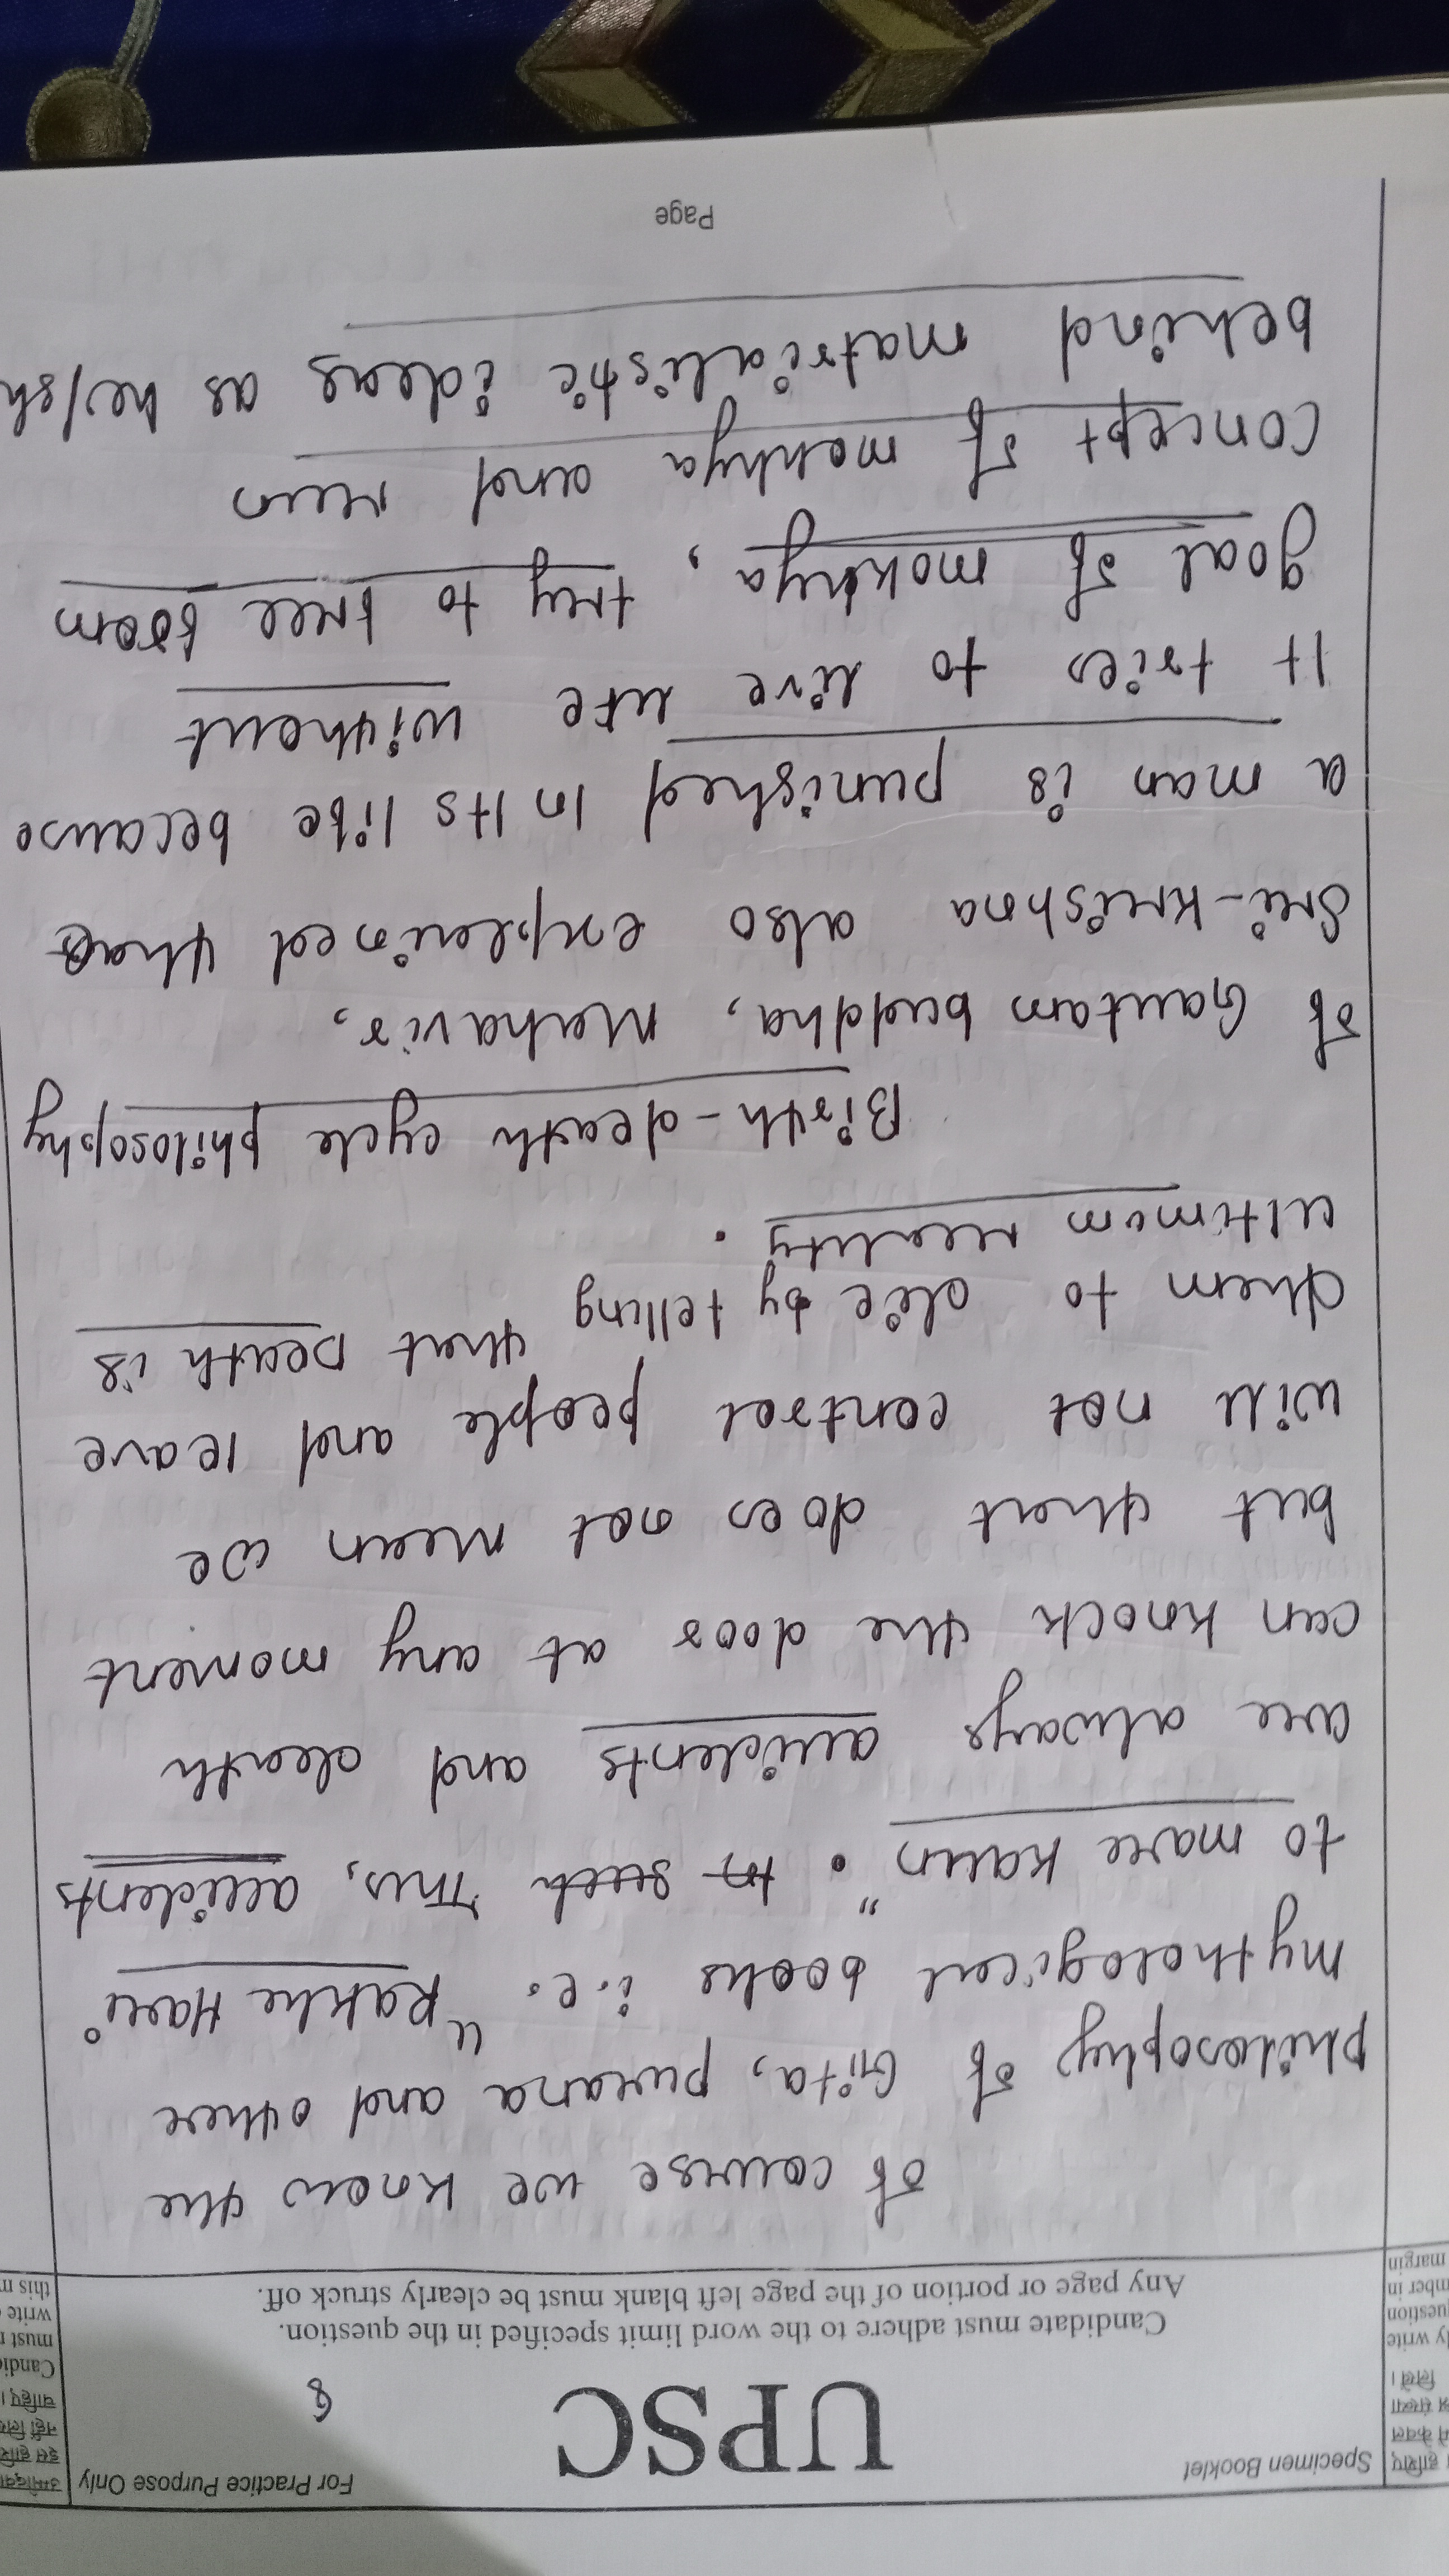 Specimen Booklet
For Practice Purpose Only
UPSC
8
Candidate must adhere to the word limit specified in the question.
Any page or portion of the page left blank must be clearly struck off.
of course we know the
philosophy of Gita, purana and other
mythological books i.e. "Rakhe Hari
to mare kaun". to such Thus, accidents
are always accidents and death
can knock the door at any moment
but that does not mean we
will not control people and leave
them to die by telling that Death is
ultimum reality.
Birth-death cycle philosophy
of Gautam buddha, Mahavir,
Sri-Krishna also explained that
a man is punished in its life because
It tries to live life without
goal of mokhya, try to free from
concept of mokhya and run
behind matrialistic ideas as he/sh
Page